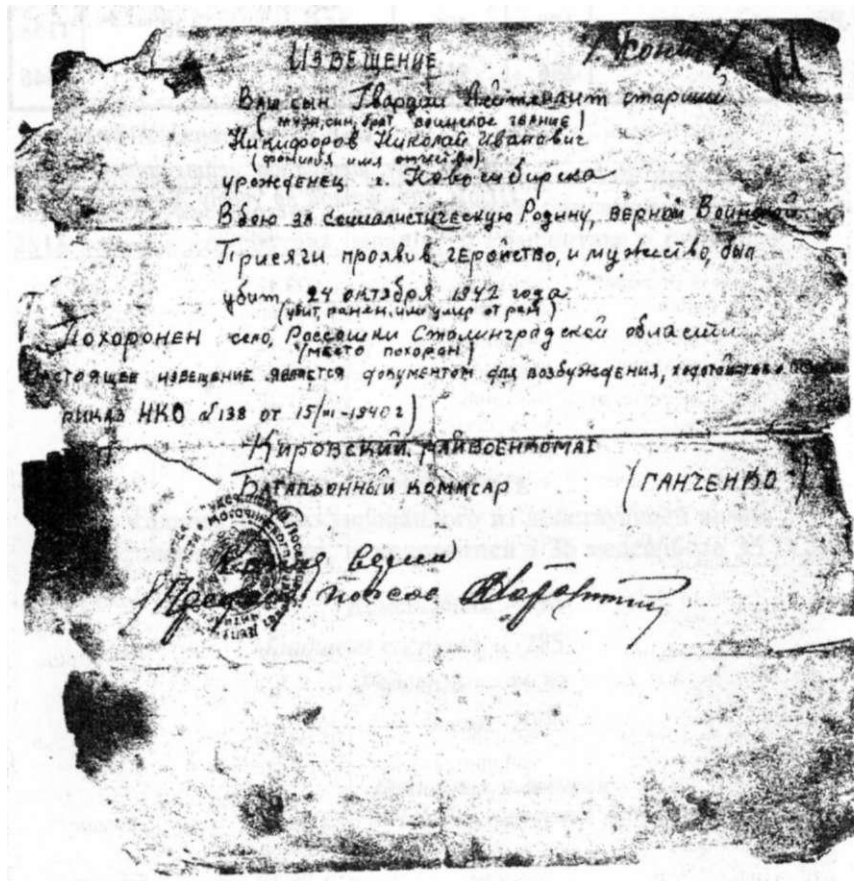 Извещение / Копия /
Ваш сын Гвардии Лейтенант старший
(муж, сын, брат воинское звание)
Никифоров Николай Иванович
(фамилия имя отчество)
урожденец г. Новосибирска
В бою за социалистическую Родину, верной Воинской
Присяги проявив геройство, и мужество, был
убит 24 октября 1942 года
(убит, ранен, или умер от ран)
Похоронен село, Россошки Сталинградской области
(место похорон)
настоящее извещение является документом для возбуждения, ходатайства о
риказ НКО №138 от 15/III-1940г)
Кировский, райвоенкомат
Батальонный коммсар (Ганченко)
Копия верна